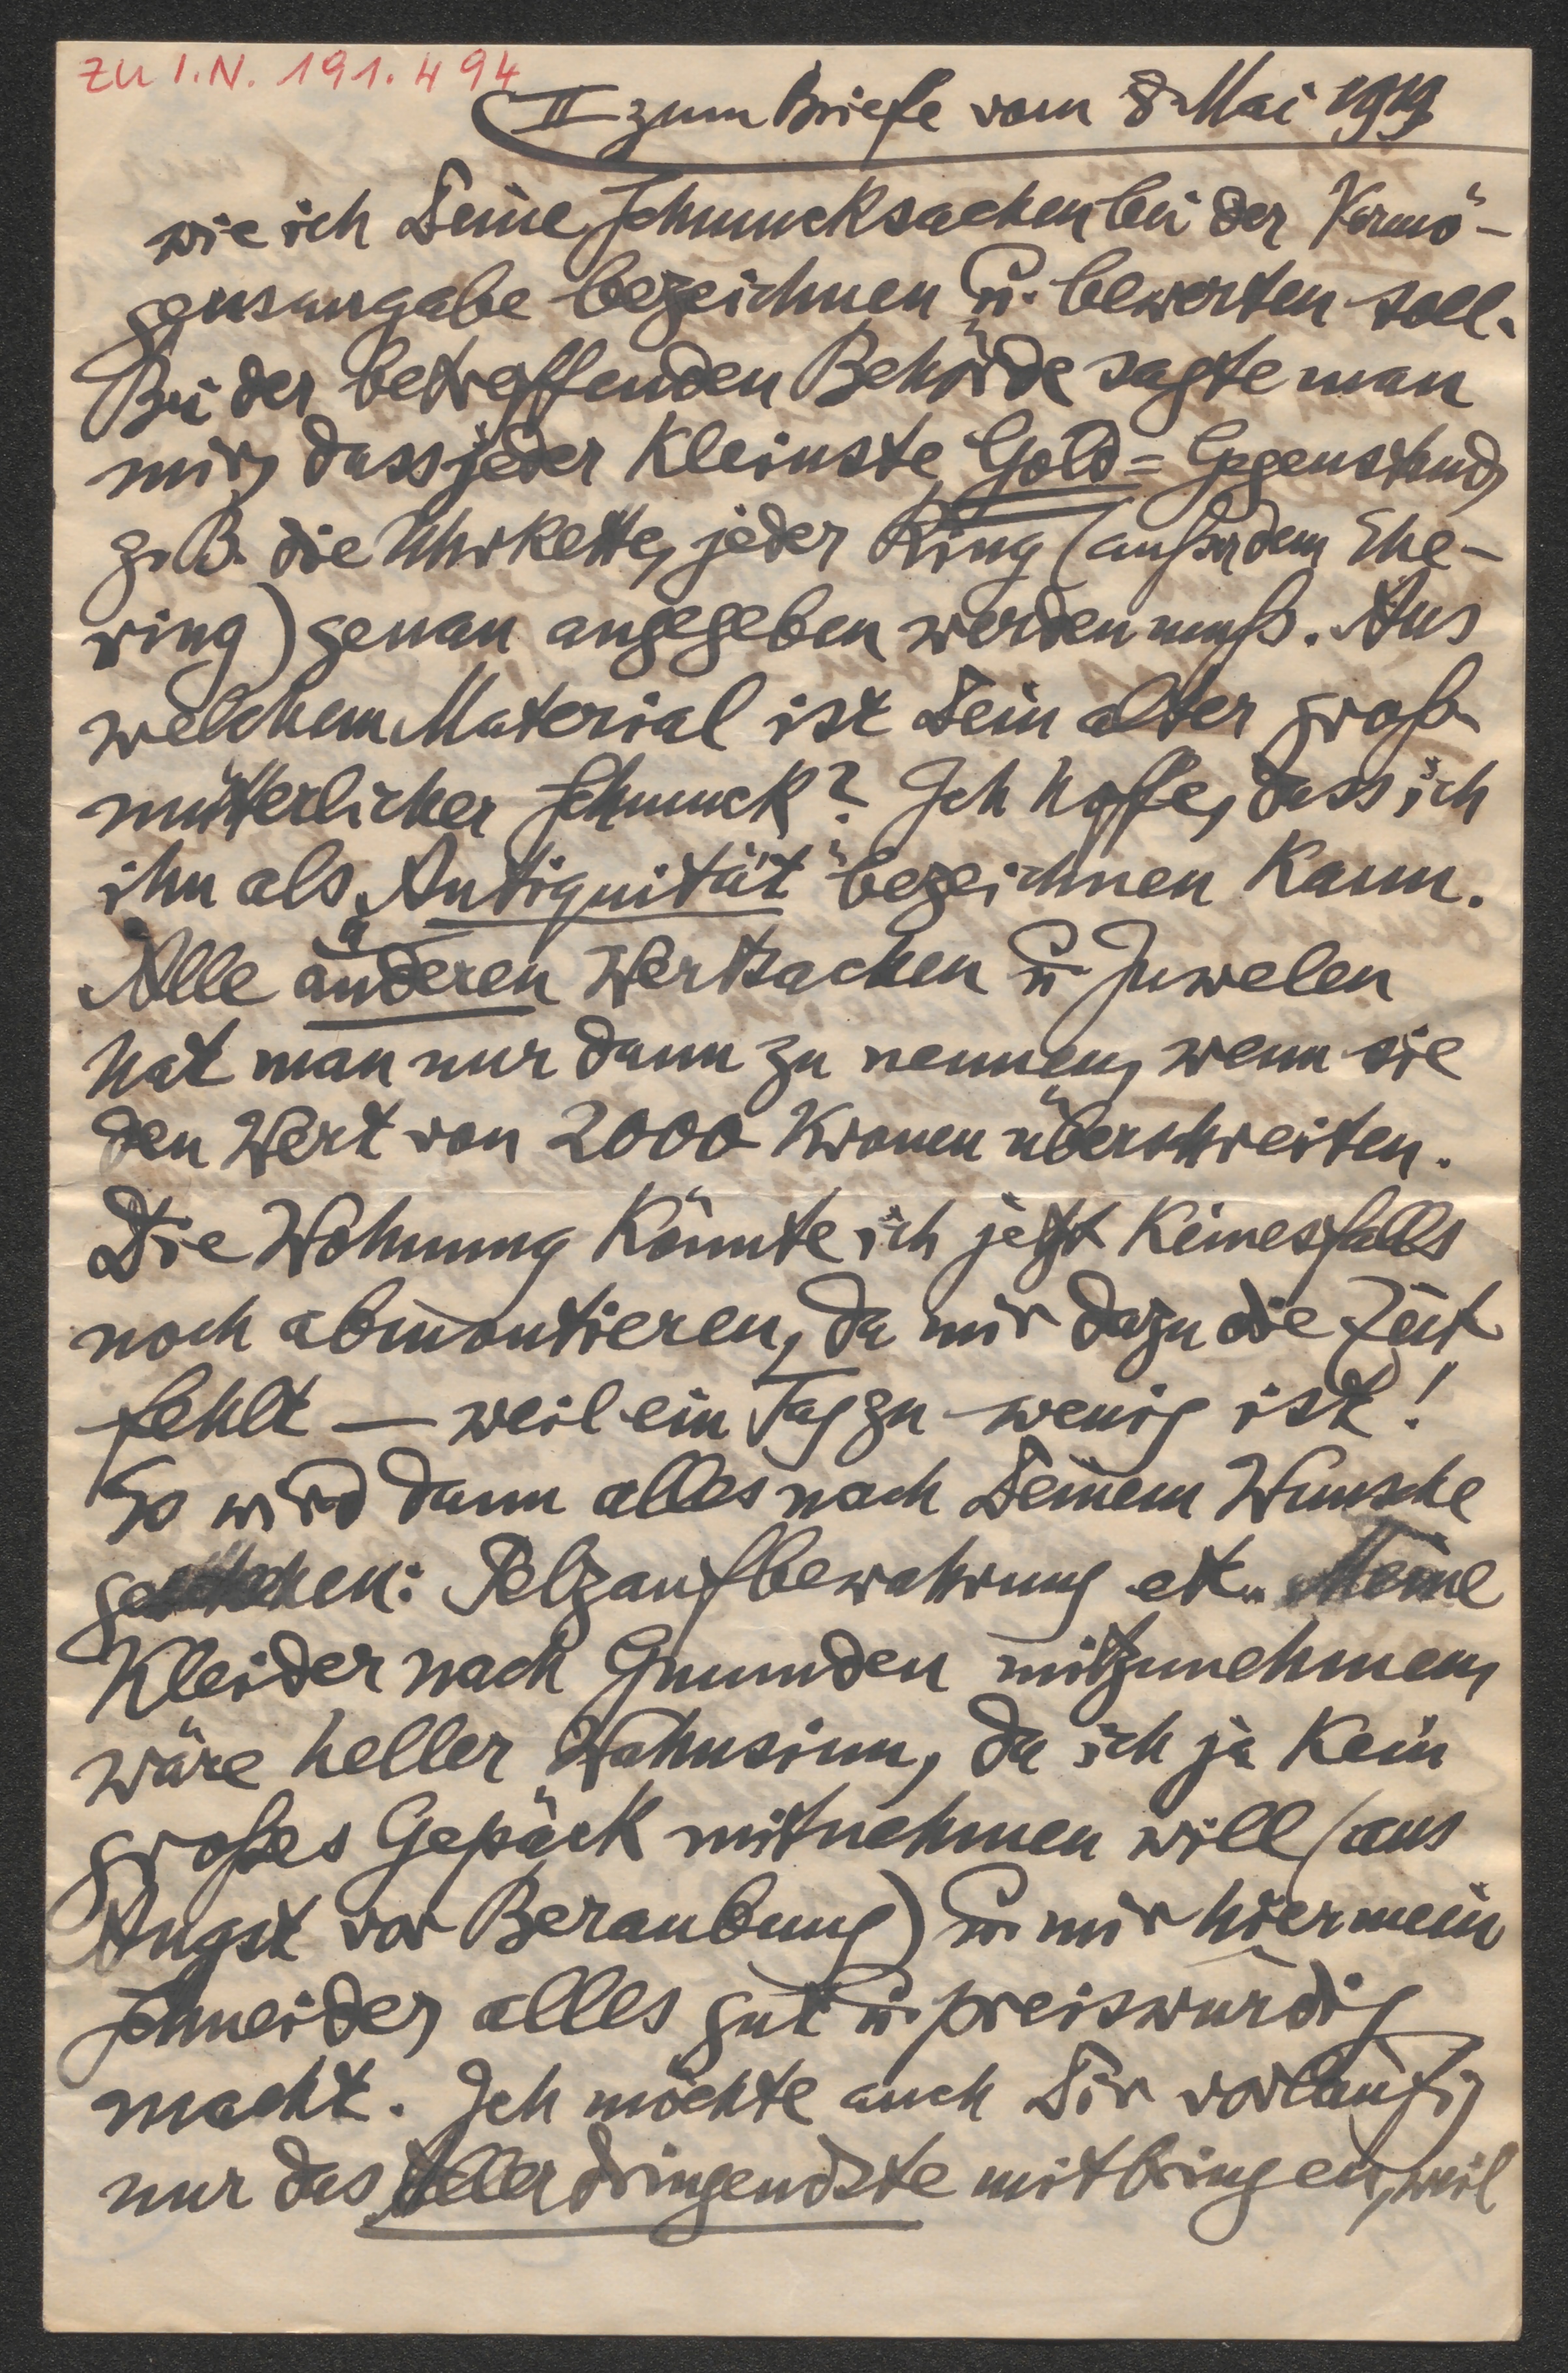 ZU I.N. 191.494
II zum Briefe vom 8. Mai 1919
wie ich Deine Schmucksachen bei der Vermö-
gensangabe bezeichnen u. bewerten soll.
Bei der betreffenden Behörde sagte man
mir, dass jeder kleinste Gold=Gegenstand,
z. B. die Uhrkette, jeder Ring (außer dem Ehe-
ring) genau angegeben werden muß. Aus
welchem Material ist Dein alter groß-
mütterlicher Schmuck? Ich hoffe, dass ich
ihn als „Antiquität“ bezeichnen kann.
Alle anderen Wertsachen u. Juwelen
hat man nur dann zu nennen, wenn sie
den Wert von 2000 Kronen überschreiten.
Die Wohnung könnte ich jetzt keinesfalls
noch abmontieren, da mir dazu die Zeit
fehlt — weil ein Tag zu wenig ist!
So wird dann alles nach Deinem Wunsche
geschehen: Pelzaufbewahrung etc. Meine
Kleider nach Gmunden mitzunehmen,
wäre heller Wahnsinn, da ich ja kein
großes Gepäck mitnehmen will (aus
Angst vor Beraubung) u. mir hier mein
Schneider, alles gut u. preiswürdig
macht. Ich möchte auch Dir vorläufig
nur das Allerdringendste mitbringen, weil